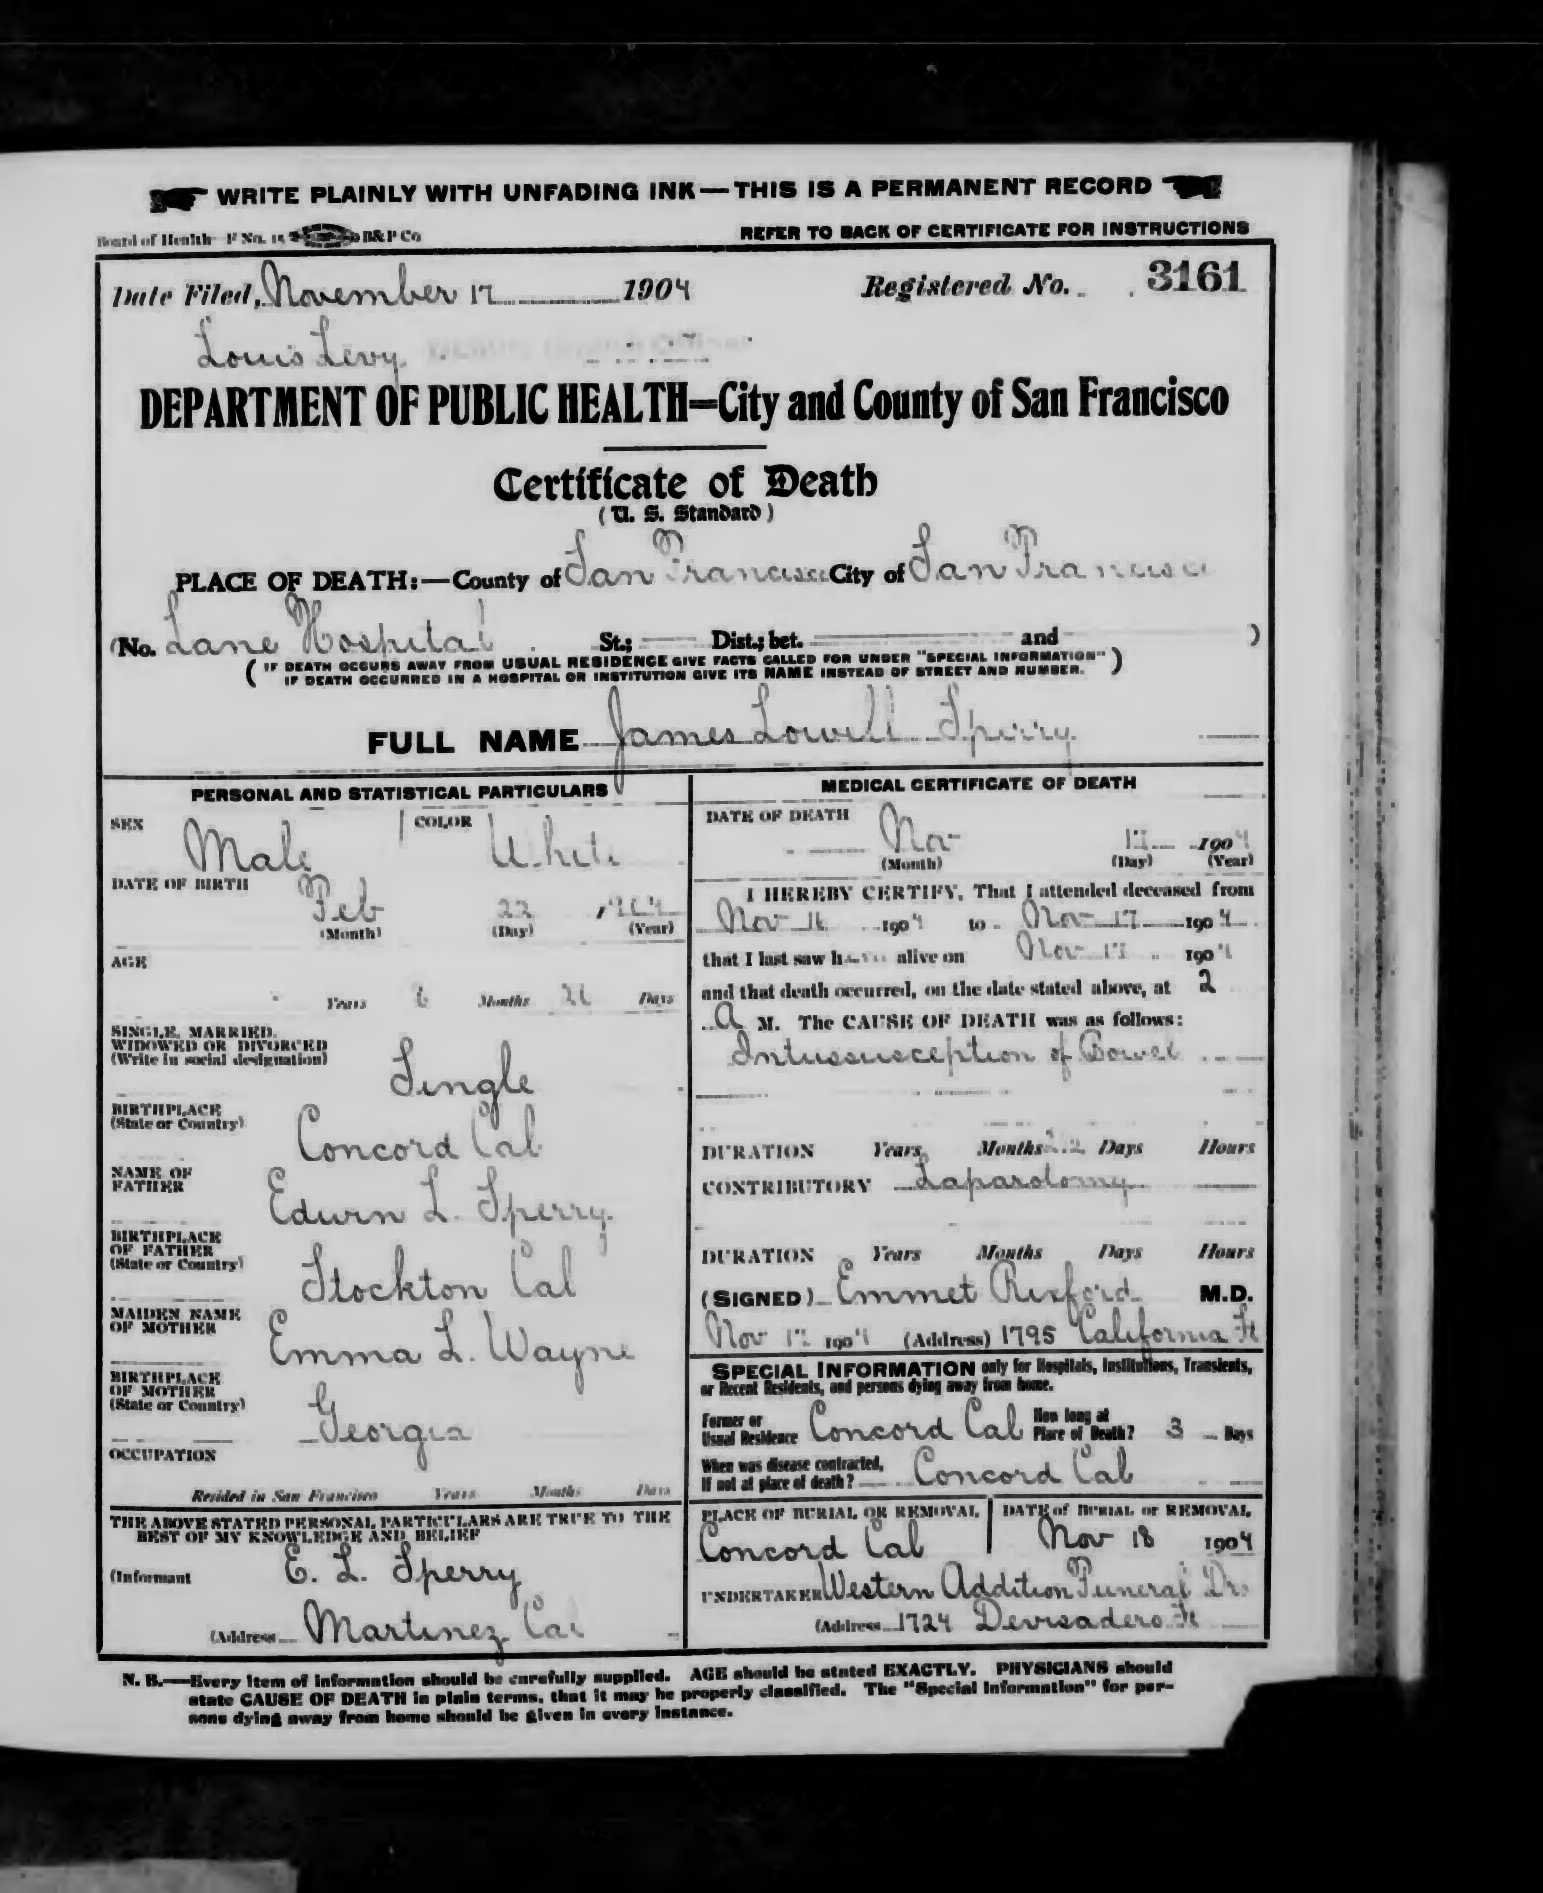 WRITE PLAINLY WITH UNFADING INK—THIS IS A PERMANENT RECORD
Board of Health—F No. 15 B&P Co
REFER TO BACK OF CERTIFICATE FOR INSTRUCTIONS
Date Filed, November 17 1904
Registered No. 3161
Louis Levy
DEPARTMENT OF PUBLIC HEALTH=City and County of San Francisco
Certificate of Death
(U. S. Standard)
PLACE OF DEATH:—County of San Francisco City of San Francisco
(No. Lane Hospital St.; Dist.; bet. and )
(IF DEATH OCCURS AWAY FROM USUAL RESIDENCE GIVE FACTS CALLED FOR UNDER "SPECIAL INFORMATION"
IF DEATH OCCURRED IN A HOSPITAL OR INSTITUTION GIVE ITS NAME INSTEAD OF STREET AND NUMBER.)
FULL NAME James Lowell Sperry
PERSONAL AND STATISTICAL PARTICULARS
SEX Male
COLOR White
DATE OF BIRTH
Feb 22 1904
(Month) (Day) (Year)
AGE
Years Months Days
SINGLE, MARRIED,
WIDOWED OR DIVORCED
(Write in social designation)
Single
BIRTHPLACE
(State or Country)
Concord Cal
NAME OF
FATHER
Edwin L. Sperry
BIRTHPLACE
OF FATHER
(State or Country)
Stockton Cal
MAIDEN NAME
OF MOTHER
Emma L. Wayne
BIRTHPLACE
OF MOTHER
(State or Country)
Georgia
OCCUPATION
Resided in San Francisco Years Months Days
THE ABOVE STATED PERSONAL PARTICULARS ARE TRUE TO THE
BEST OF MY KNOWLEDGE AND BELIEF
(Informant E. L. Sperry
(Address Martinez Cal
MEDICAL CERTIFICATE OF DEATH
DATE OF DEATH
Nov 17 1904
(Month) (Day) (Year)
I HEREBY CERTIFY, That I attended deceased from
Nov 1904 to Nov 17 1904
that I last saw h alive on Nov 17 1904
and that death occurred, on the date stated above, at 2
A M. The CAUSE OF DEATH was as follows:
Intussusception of Bowel
DURATION Years Months Days Hours
CONTRIBUTORY Laparotomy
DURATION Years Months Days Hours
(SIGNED) Emmet Rixford M.D.
Nov 17 1904 (Address) 1795 California St
SPECIAL INFORMATION only for Hospitals, Institutions, Transients,
or Recent Residents, and persons dying away from home.
Former or
Usual Residence Concord Cal
How long at
Place of Death? 3 Days
When was disease contracted,
If not at place of death? Concord Cal
PLACE OF BURIAL OR REMOVAL
Concord Cal
DATE of BURIAL or REMOVAL
Nov 18 1904
UNDERTAKER Western Addition Funeral Drs
(Address 1724 Devisadero St
N. B.—Every item of information should be carefully supplied. AGE should be stated EXACTLY. PHYSICIANS should
state CAUSE OF DEATH in plain terms, that it may be properly classified. The "Special Information" for per-
sons dying away from home should be given in every instance.